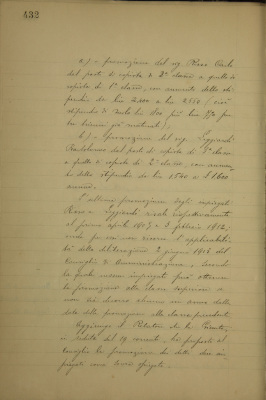 432
a) – promozione del sig. Rossi Carlo
dal posto di copista di 2ª classe a quello di
copista di 1ª classe, con aumento dello sti-
pendio da lire 2.000 a lire
stipendio di lire più lire
già maturati);
b) – promozione del sig.
dal posto di copista di 3ª classe
a quello di copista di 2ª classe, con aumen-
to dello stipendio da lire 1.540 a £ 1.600
annue.
L'ultima promozione degli impiegati
Rossi e risale rispettivamente
al primo aprile e 3 febbraio 1902,
per cui non osserva l'applicabili-
tà della deliberazione 2 giugno del
Consiglio di Amministrazione, secondo
la quale nessun impiegato può ottenere
la promozione alla classe superiore se
non sia decorso almeno un anno dalla
data della promozione alla classe precedente.
Aggiunge il Relatore che la Giunta,
in seduta del 19 corrente, ha proposto al
Consiglio la promozione dei detti due im-
piegati come sopra